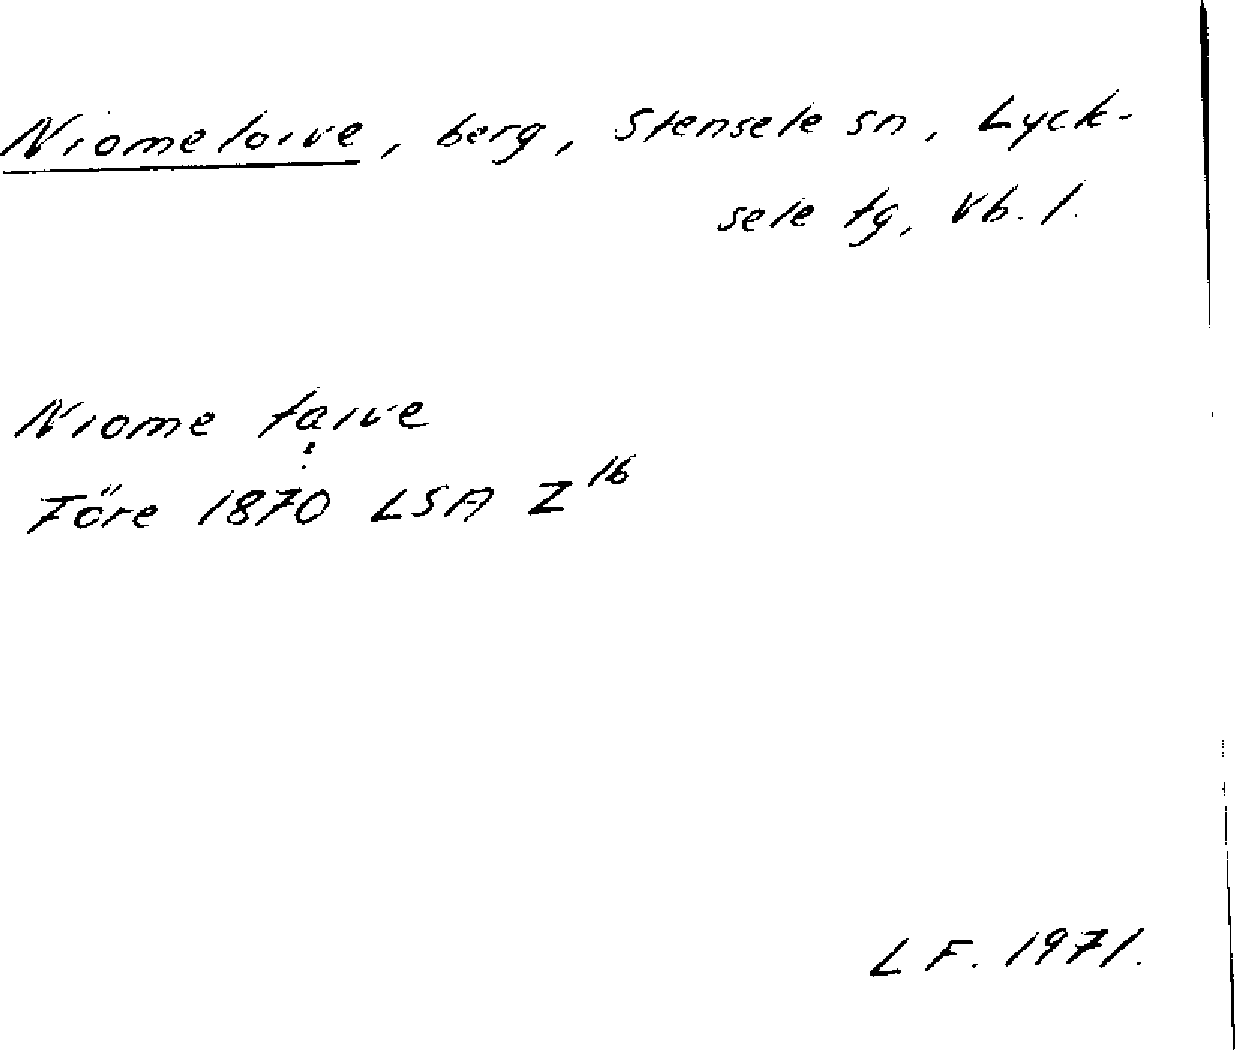 Niometaive, berg, Stensele sn, Lyck-
sele tg, Vb. l.
Niome taive
Före 1870 LSA Z 16
LF. 1971.